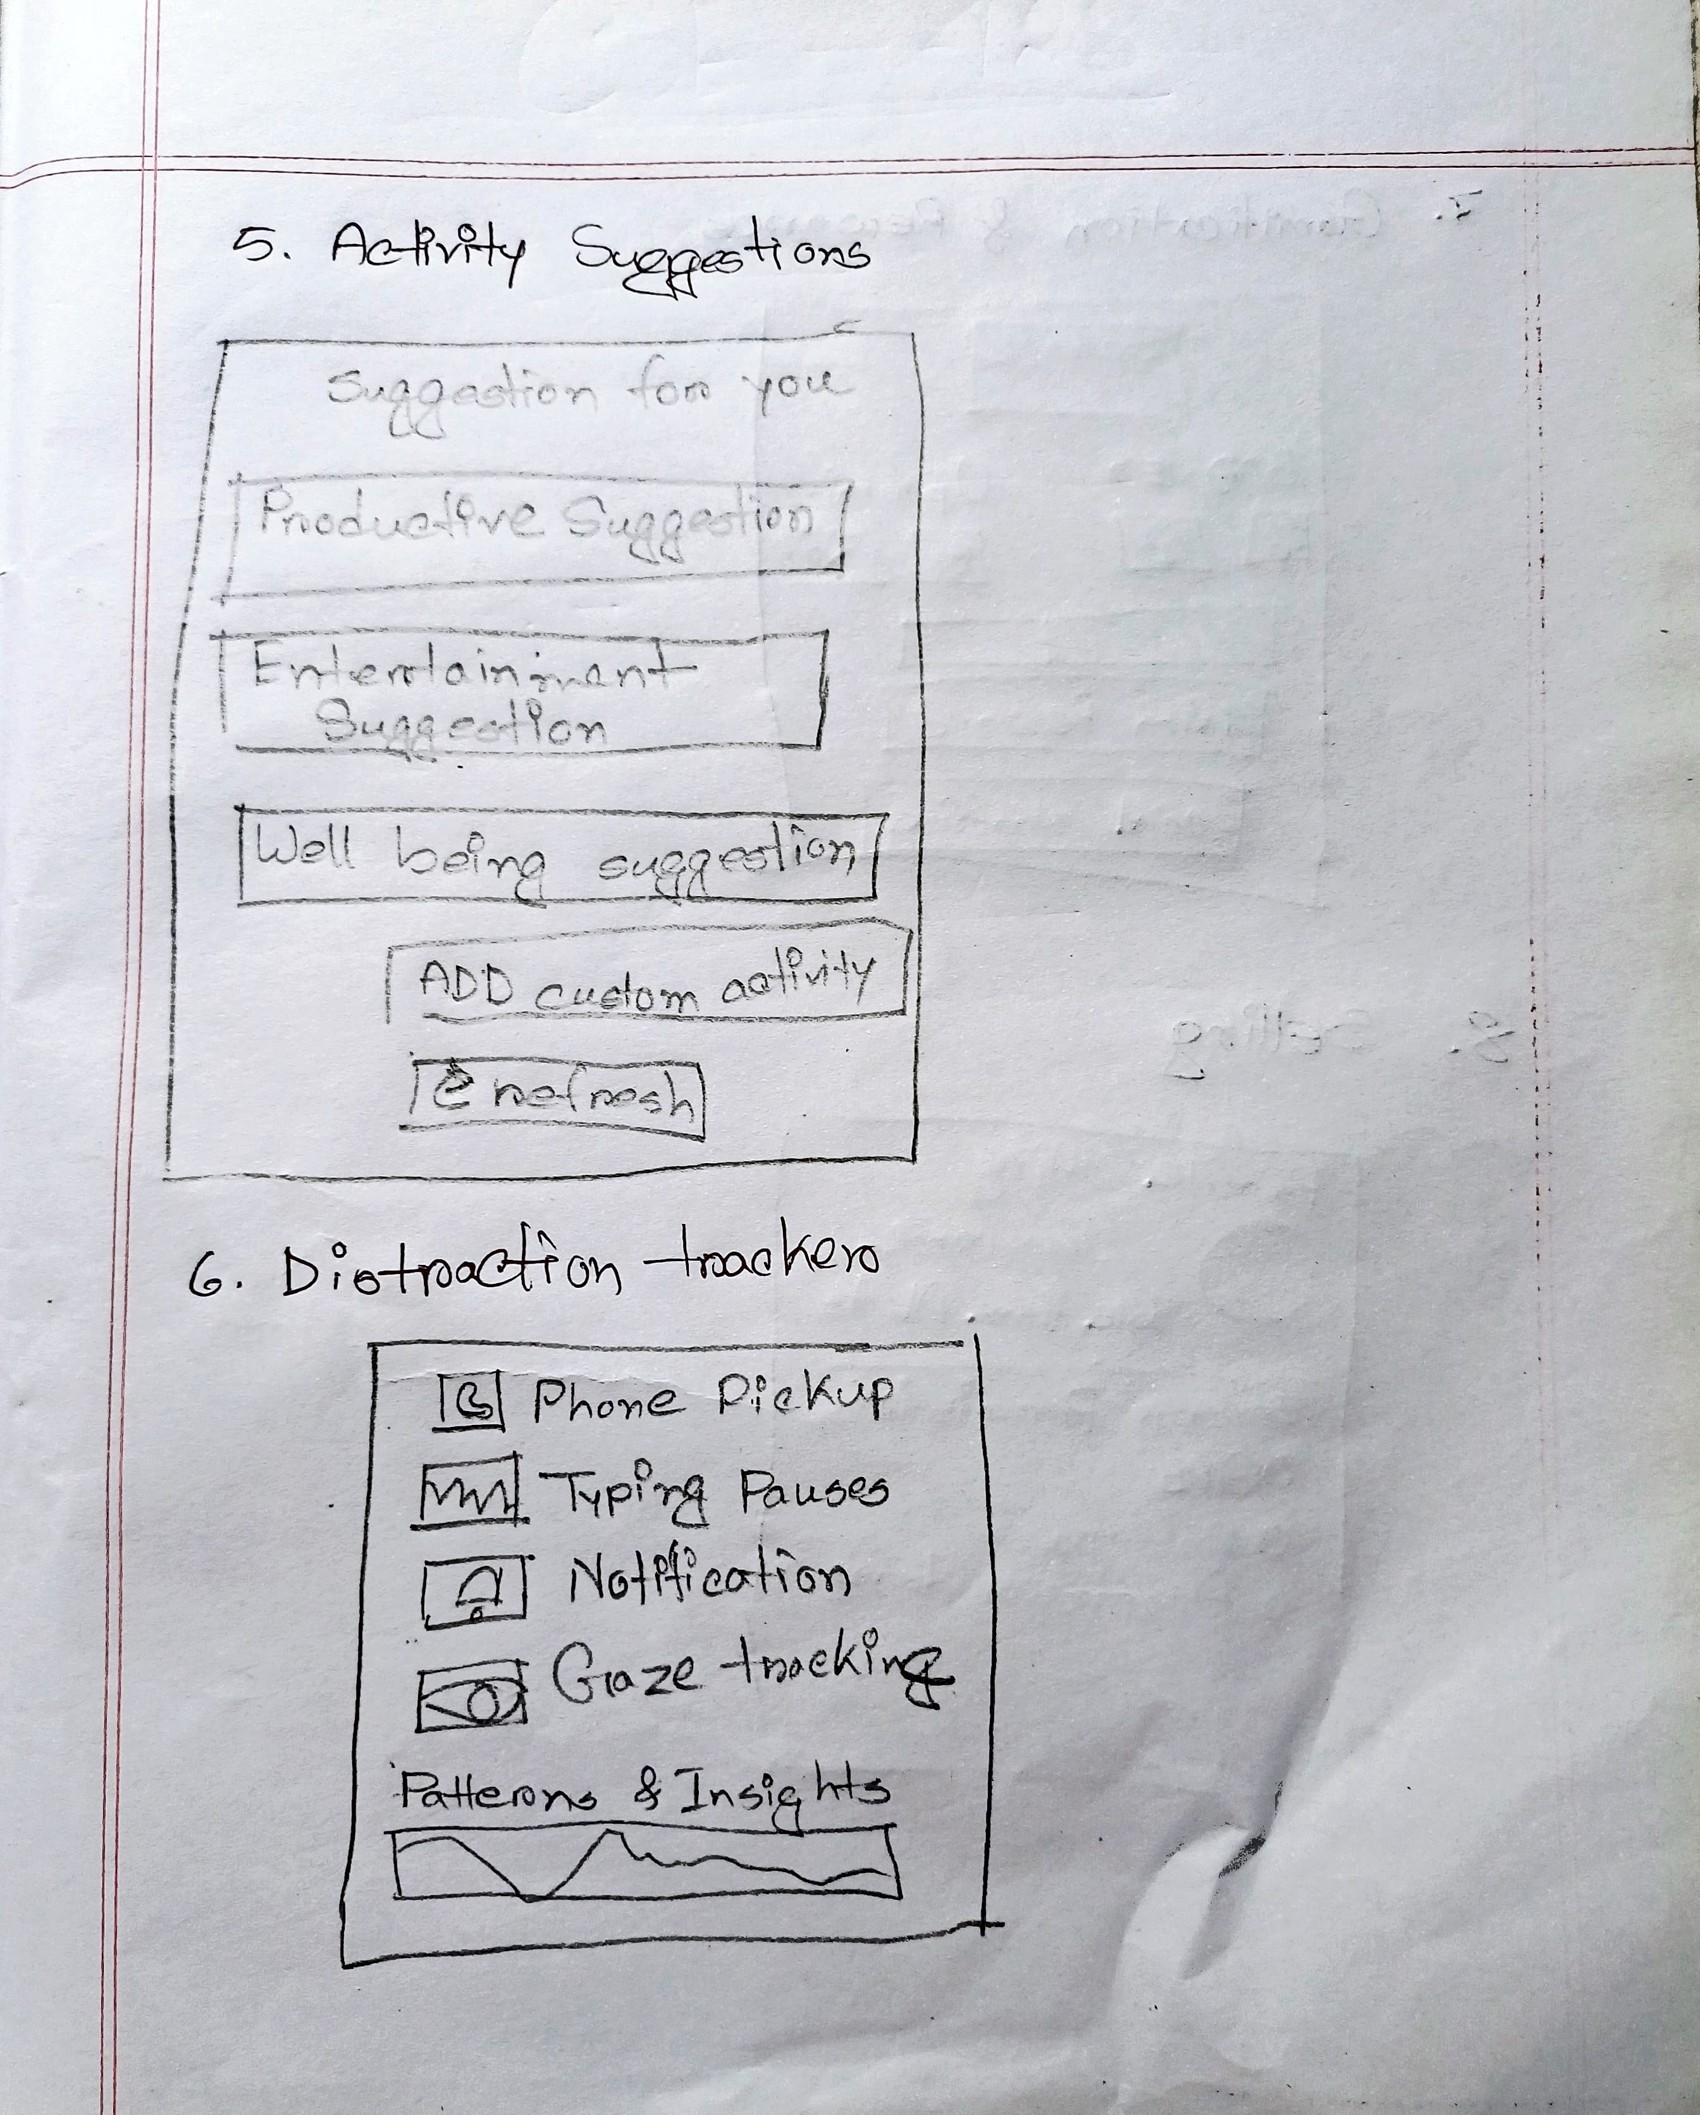 5. Activity Suggestions
Suggestion for you
Productive Suggestion
Entertainment
Suggestion
Well being suggestion
ADD custom activity
refresh
6. Distraction tracker
Phone Pickup
Typing Pauses
Notification
Gaze tracking
Patterns & Insights